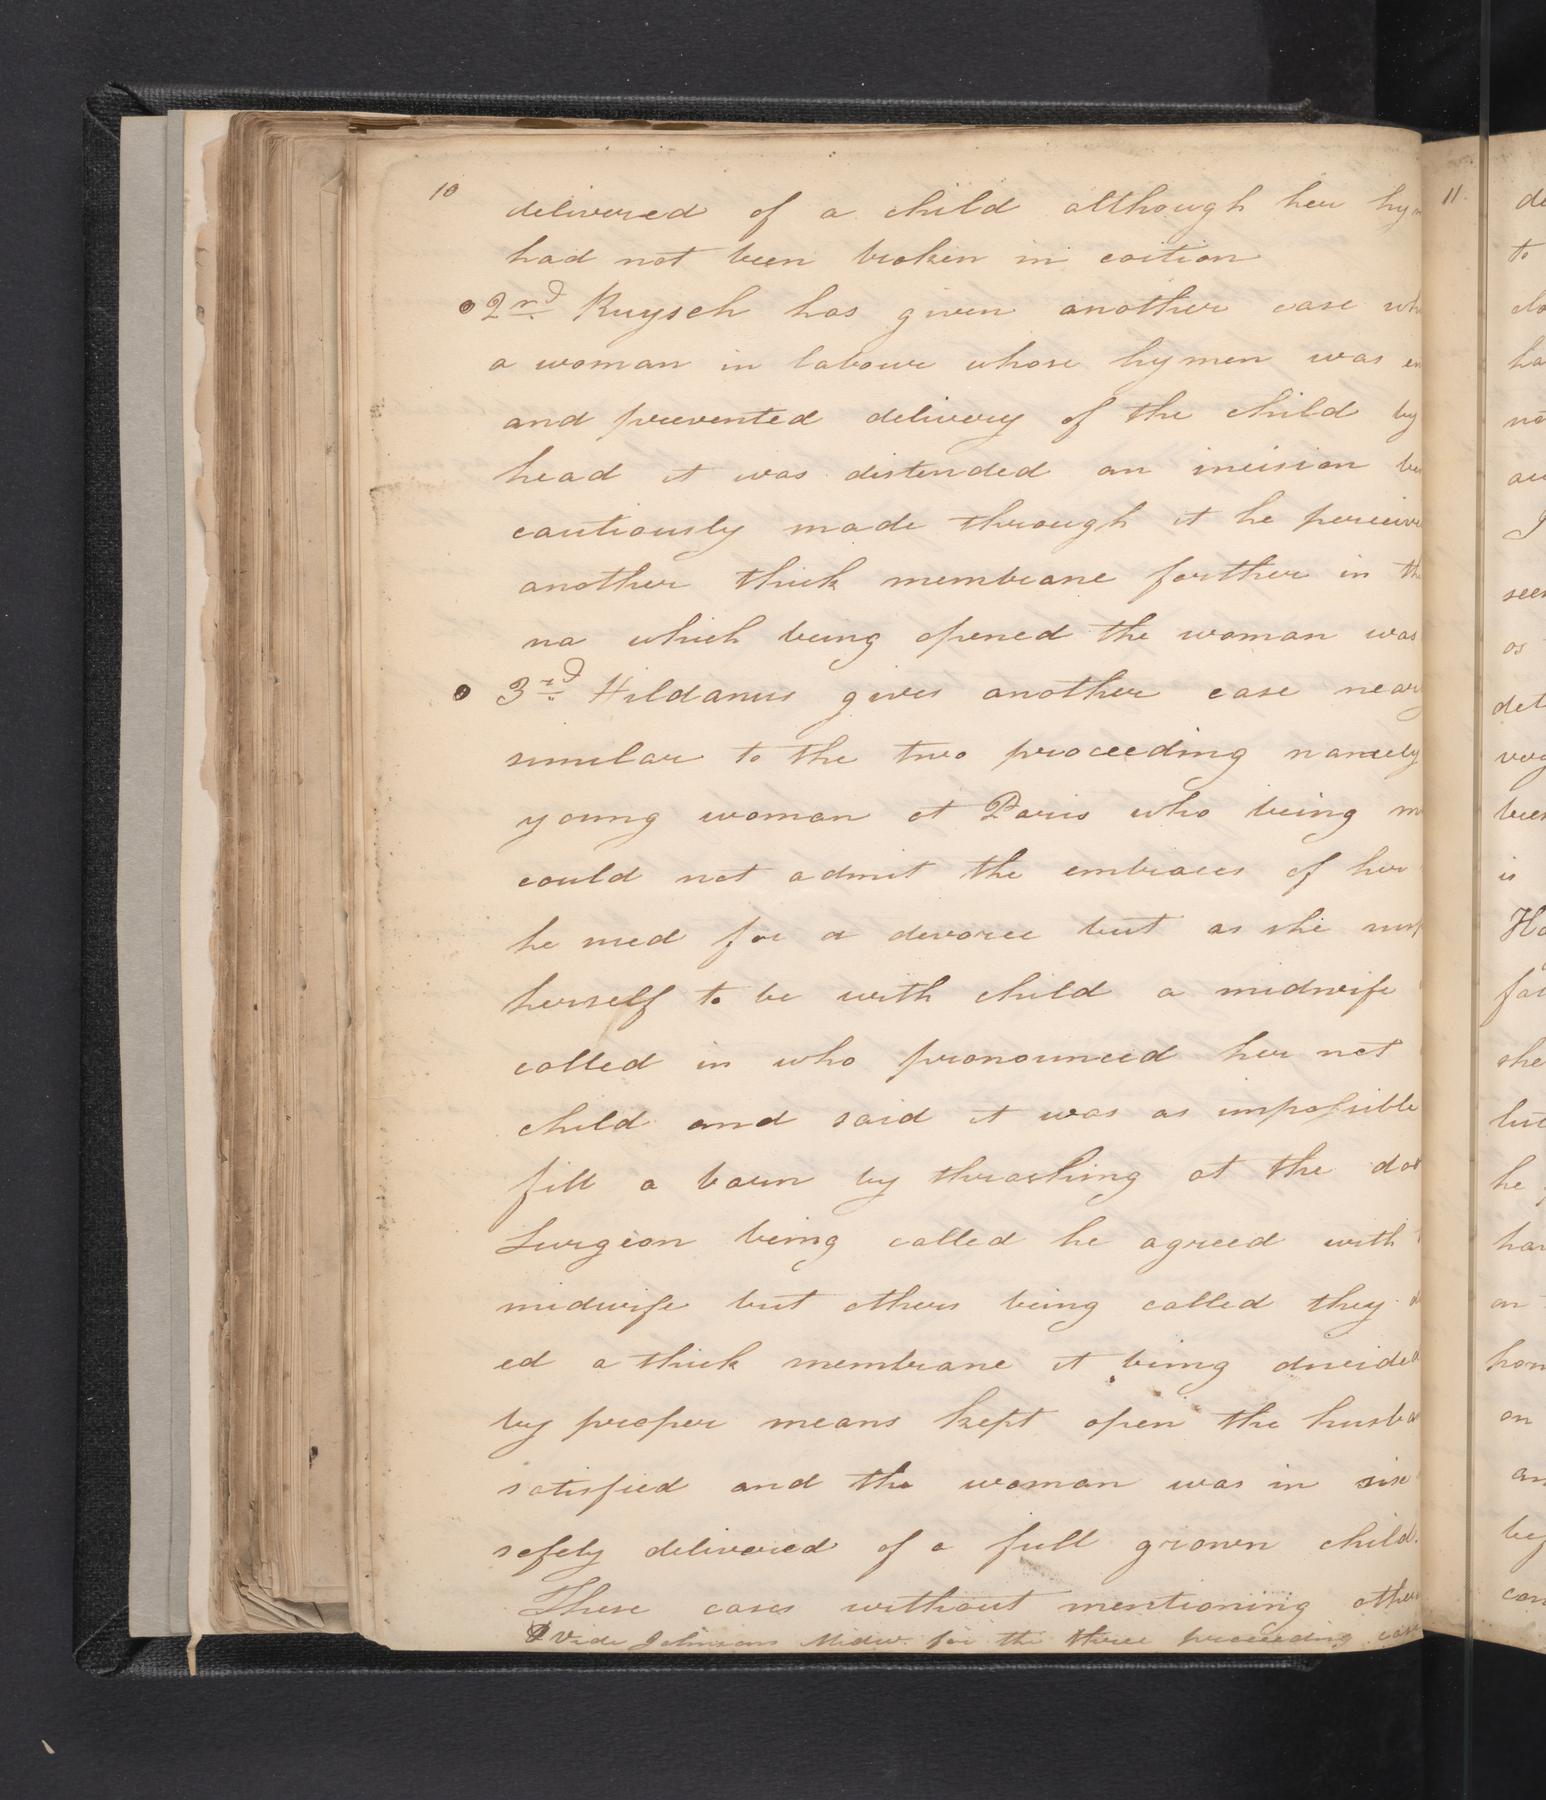 10
delivered of a child although her hy
had not been broken in coition
2nd Ruysch has given another case wh
a woman in labour whose hymen was en
and prevented delivery of the child by
head it was distended an incision be
cautiously made through it he perceive
another thick membrane farther in th
na which being opened the woman was
3rd Hildanus gives another case near
similar to the two proceeding namely
young woman at Paris who being m
could not admit the embraces of her
he sued for a divorce but as she
herself to be with child a midwife
called in who pronounced her not
child and said it was as impossible
fill a barn by thrashing at the doo
Surgeon being called he agreed with
midwife but others being called they
ed a thick membrane it being divided
by proper means kept open the husba
satisfied and the woman was in six
safely delivered of a full grown child.
These cases without mentioning other
Vide Johnsons Midw. for the three proceeding case
11.
de
to
ha
no
I
see
as
det
bee
is
Ha
fa
she
he
ha
on
hon
on
an
by
con